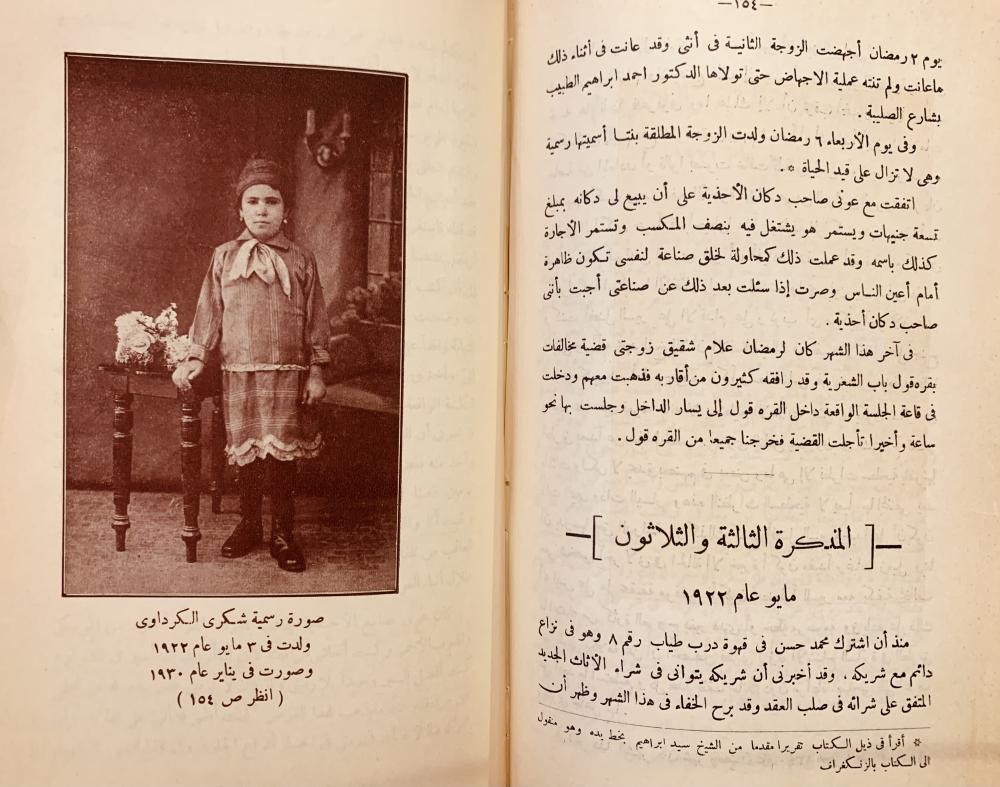 —١٥٤—
يوم ٢ رمضان أجهضت الزوجة الثانية فى أنثى وقد عانت فى أثناء ذلك
ماعانت ولم تنته عملية الاجهاض حتى تولاها الدكتور احمد ابراهيم الطبيب
بشارع الصليبة .
وفى يوم الأربعاء ٦ رمضان ولدت الزوجة المطلقة بنتا أسميتها رسمية
وهى لا تزال على قيد الحياة * .
اتفقت مع عونى صاحب دكان الأحذية على أن يبيع لى دكانه بمبلغ
تسعة جنيهات ويستمر هو يشتغل فيه بنصف المكسب وتستمر الأجارة
كذلك باسمه وقد عملت ذلك كمحاولة لخلق صناعة لنفسى تكون ظاهرة
أمام أعين الناس وصرت إذا سئلت بعد ذلك عن صناعتى أجبت بأننى
صاحب دكان أحذية .
فى آخر هذا الشهر كان لرمضان علام شقيق زوجتى قضية مخالفات
بقره قول باب الشعرية وقد رافقه كثيرون من أقاربه فذهبت معهم ودخلت
فى قاعة الجلسة الواقعة داخل القره قول إلى يسار الداخل وجلست بها نحو
ساعة وأخيرا تأجلت القضية فخرجنا جميعا من القره قول .
—[ المذكرة الثالثة والثلاثون ]—
مايو عام ١٩٢٢
منذ أن اشترك محمد حسن فى قهوة درب طياب رقم ٨ وهو فى نزاع
دائم مع شريكه . وقد أخبرنى أن شريكه يتوانى فى شراء الأثاث الجديد
المتفق على شرائه فى صلب العقد وقد برح الخفاء فى هذا الشهر وظهر أن
* أقرأ فى ذيل الكتاب تقريرا مقدما من الشيخ سيد ابراهيم بخط يده وهو منقول
الى الكتاب بالزنكغراف
صورة رسمية شكرى الكرداوى
ولدت فى ٣ مايو عام ١٩٢٢
وصورت فى يناير عام ١٩٣٠
( انظر ص ١٥٤ )